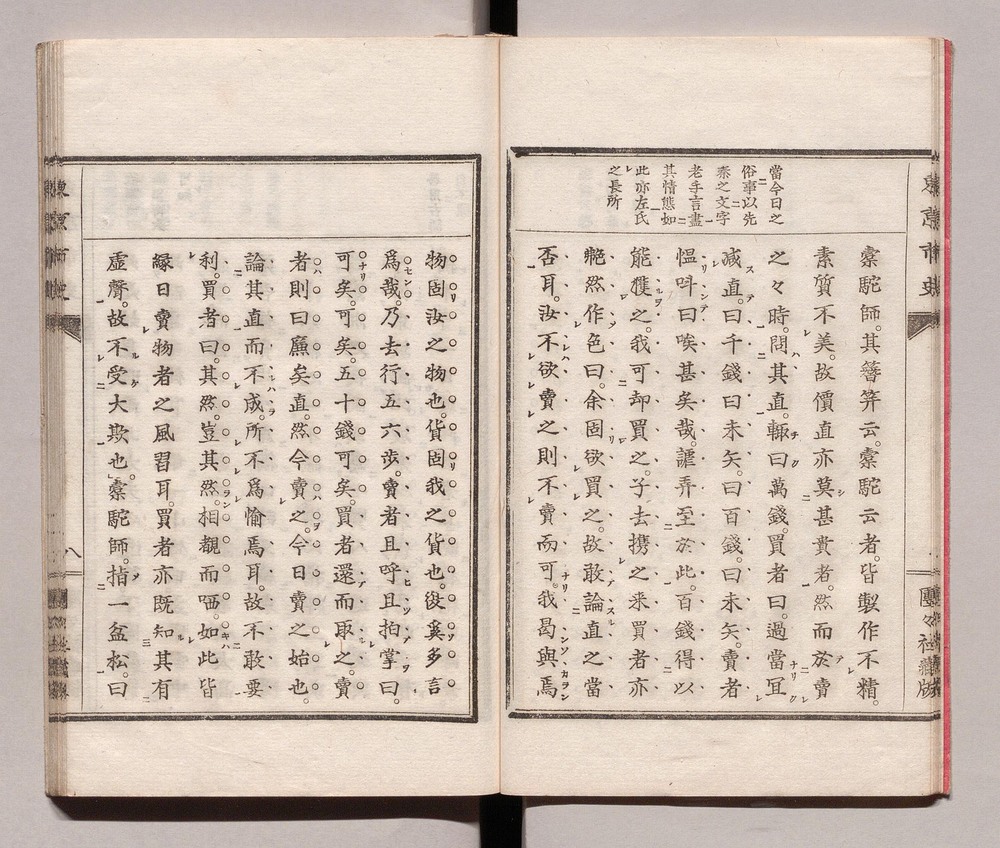 東京市史
團々社藏版
當今日之
俗事以先
秦之文字
老手言盡
其情態如
此亦左氏
之長所
槖駝師。其簪筓云。槖駝云者。皆製作不精。
素質不美。故價直亦莫甚貴者。然而於賣
之々時。問其直。輙曰萬錢。買者曰。過當冝
減直。曰千錢。曰未矣。曰百錢。曰未矣。賣者
愠呌曰。唉甚矣哉。謔弄至於此。百錢得以
能獲之。我可却買之。子去携之来。買者亦
艴然作色曰。余固欲買之。故敢論直之當
否耳。汝不欲賣之則不賣而可。我曷與焉
物固汝之物也。貨固我之貨也。復奚多言
爲哉。乃去行五六歩。賣者且呼且拍掌曰。
可矣。可矣。五十錢可矣。買者還而取之。賣
者則曰。廉矣直。然今賣之。今日賣之始也。
論其直而不成。所不爲愉焉耳。故不敢要
利。買者曰。其然。豈其然。相覩而哂。如此皆
縁日賣物者之風習耳。買者亦既知其有
虚聲。故不受大欺也。槖駝師。指一盆松。曰
東京市史
八